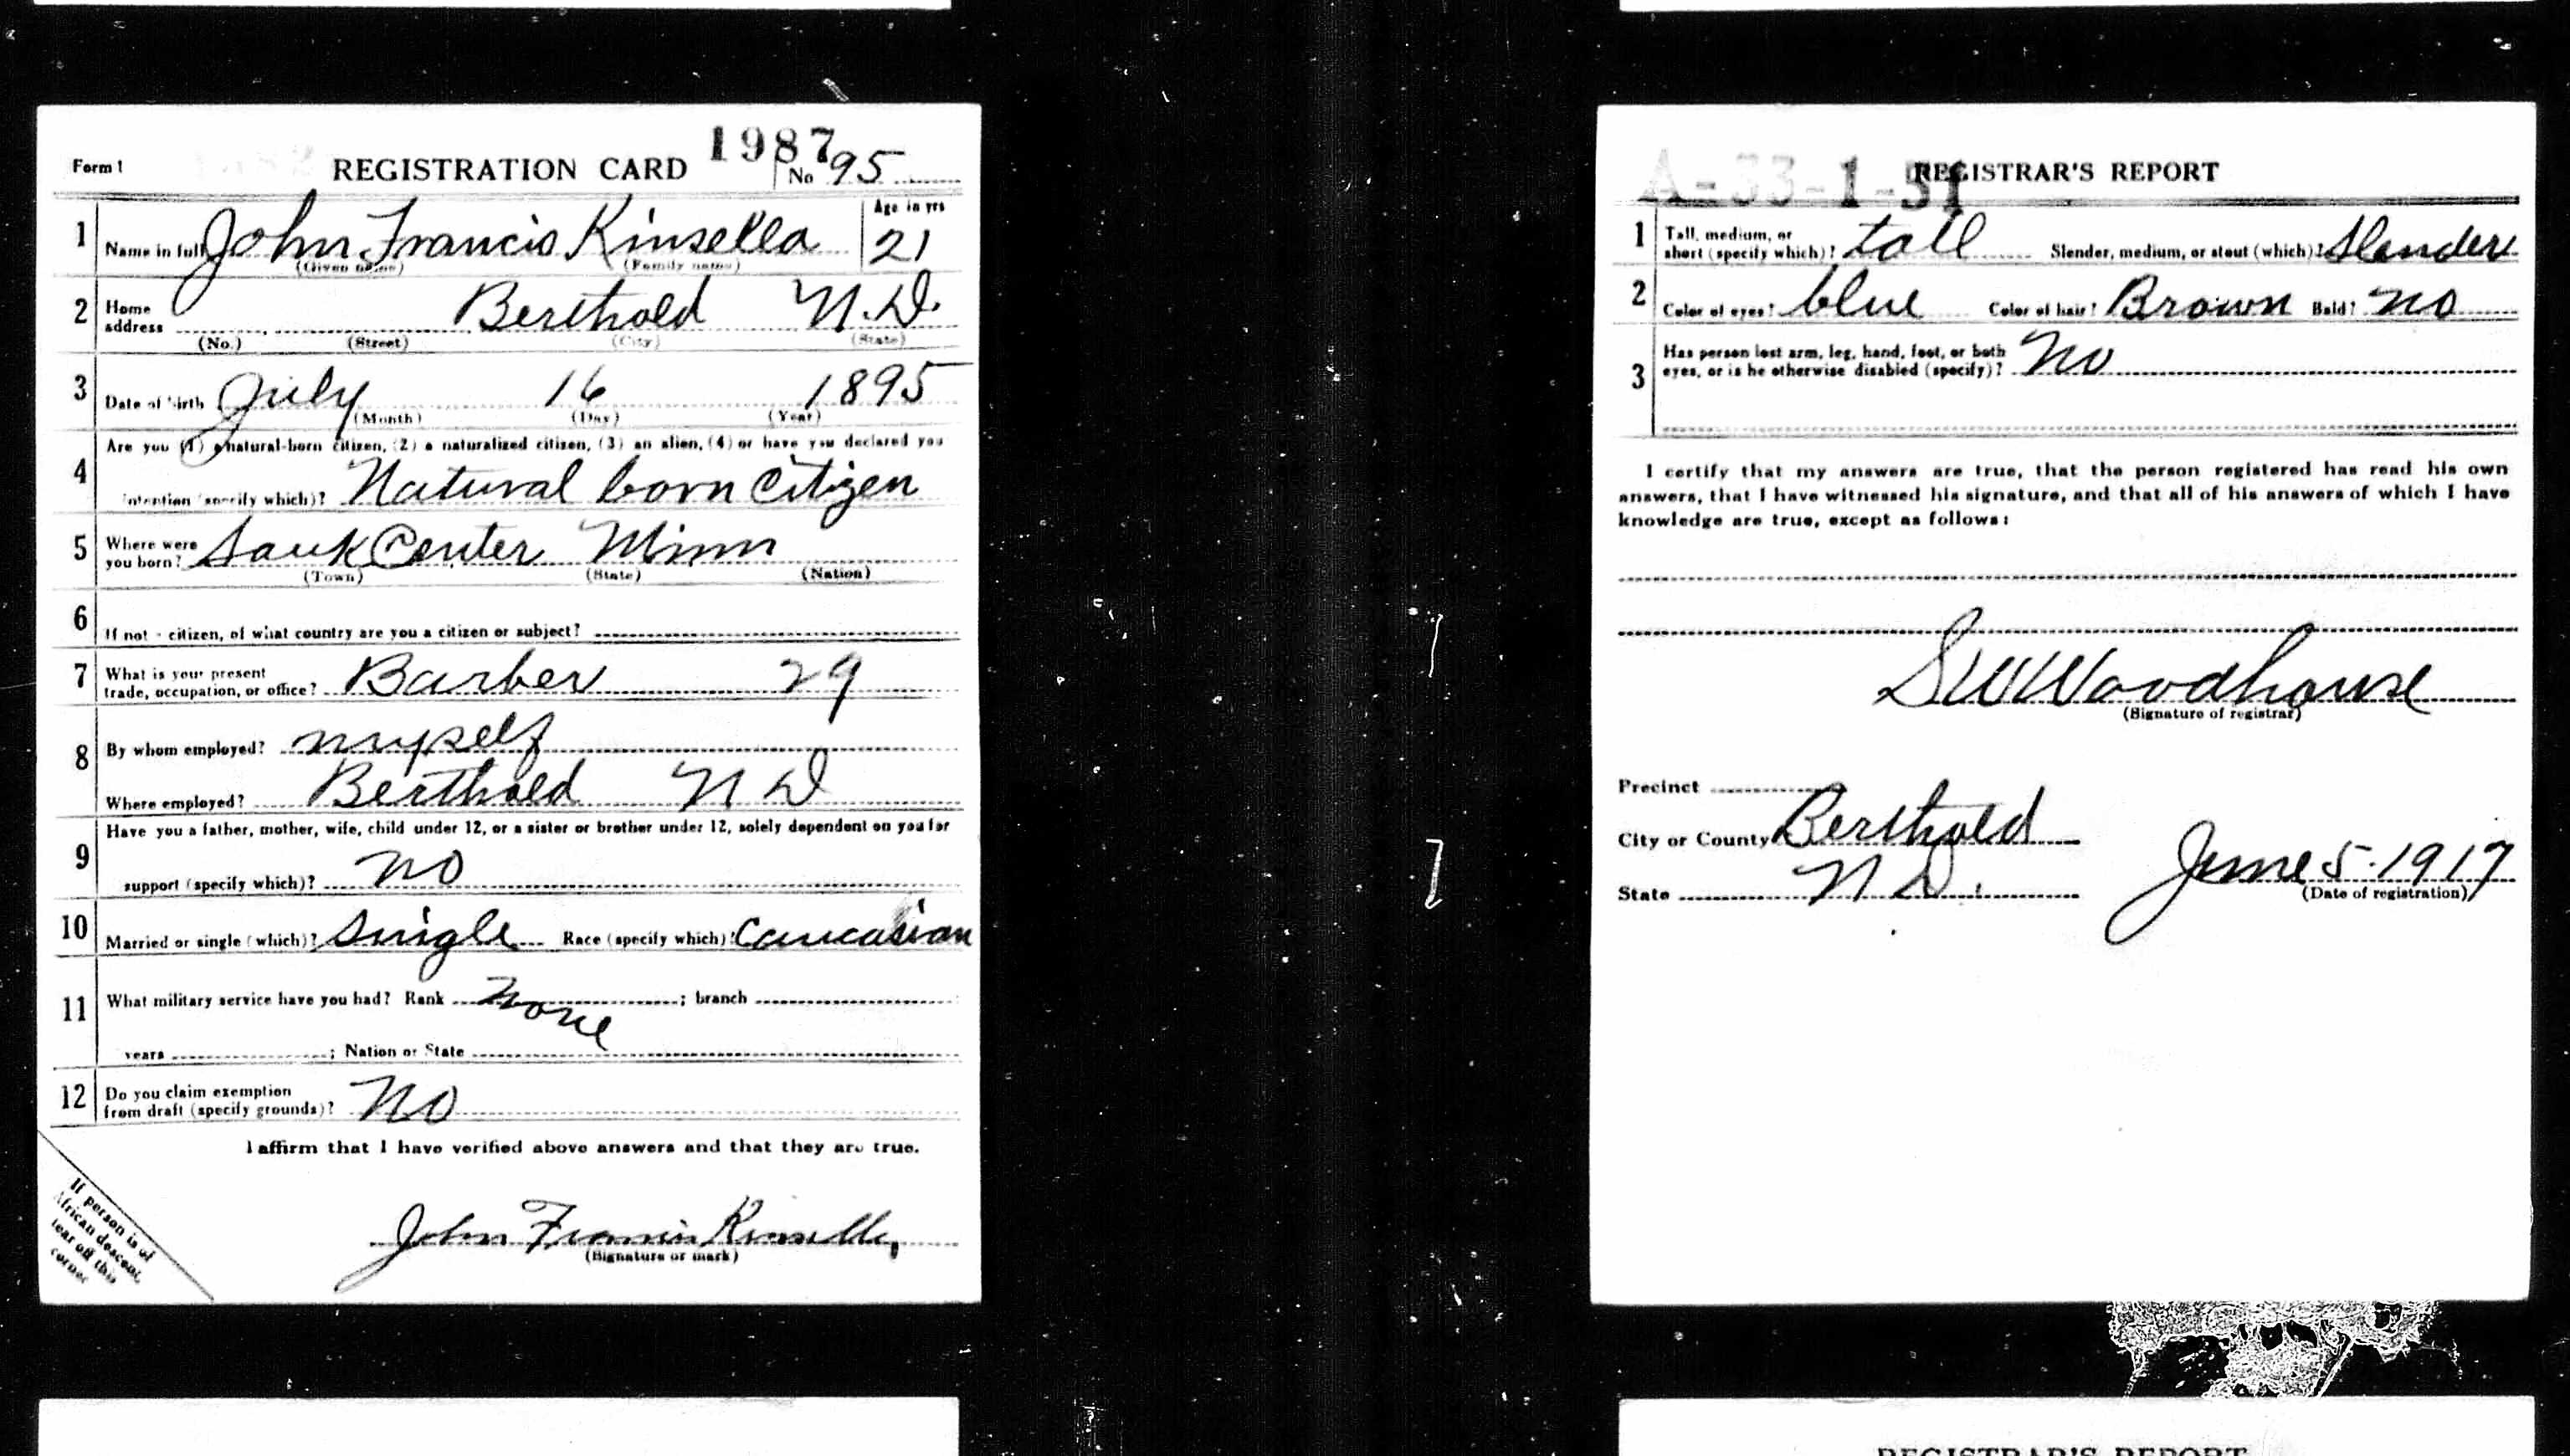 1987
Form 1 REGISTRATION CARD No 95
1 Name in full John Francis Kinsella Age in yrs 21
(Given name) (Family name)
2 Home address Berthold N.D.
(No.) (Street) (City) (State)
3 Date of birth July 16 1895
(Month) (Day) (Year)
Are you (1) a natural-born citizen, (2) a naturalized citizen, (3) an alien, (4) or have you declared you
4 intention (specify which)? Natural born Citizen
5 Where were you born? Sauk Center Minn
(Town) (State) (Nation)
6 If not citizen, of what country are you a citizen or subject?
7 What is your present trade, occupation, or office? Barber 29
8 By whom employed? myself
Where employed? Berthold N D
Have you a father, mother, wife, child under 12, or a sister or brother under 12, solely dependent on you for
9 support (specify which)? no
10 Married or single (which)? Single Race (specify which)? Caucasian
11 What military service have you had? Rank None ; branch
years ; Nation or State
12 Do you claim exemption from draft (specify grounds)? No
I affirm that I have verified above answers and that they are true.
John Francis Kinsella
(Signature or mark)
If person is of
African descent,
tear off this
corner
A-33-1-51 REGISTRAR'S REPORT
1 Tall, medium, or short (specify which)? tall Slender, medium, or stout (which)? Slender
2 Color of eyes? blue Color of hair? Brown Bald? no
3 Has person lost arm, leg, hand, foot, or both eyes, or is he otherwise disabled (specify)? No
I certify that my answers are true, that the person registered has read his own
answers, that I have witnessed his signature, and that all of his answers of which I have
knowledge are true, except as follows:
S W Woodhouse
(Signature of registrar)
Precinct
City or County Berthold
State N D. June 5. 1917
(Date of registration)
REGISTRAR'S REPORT